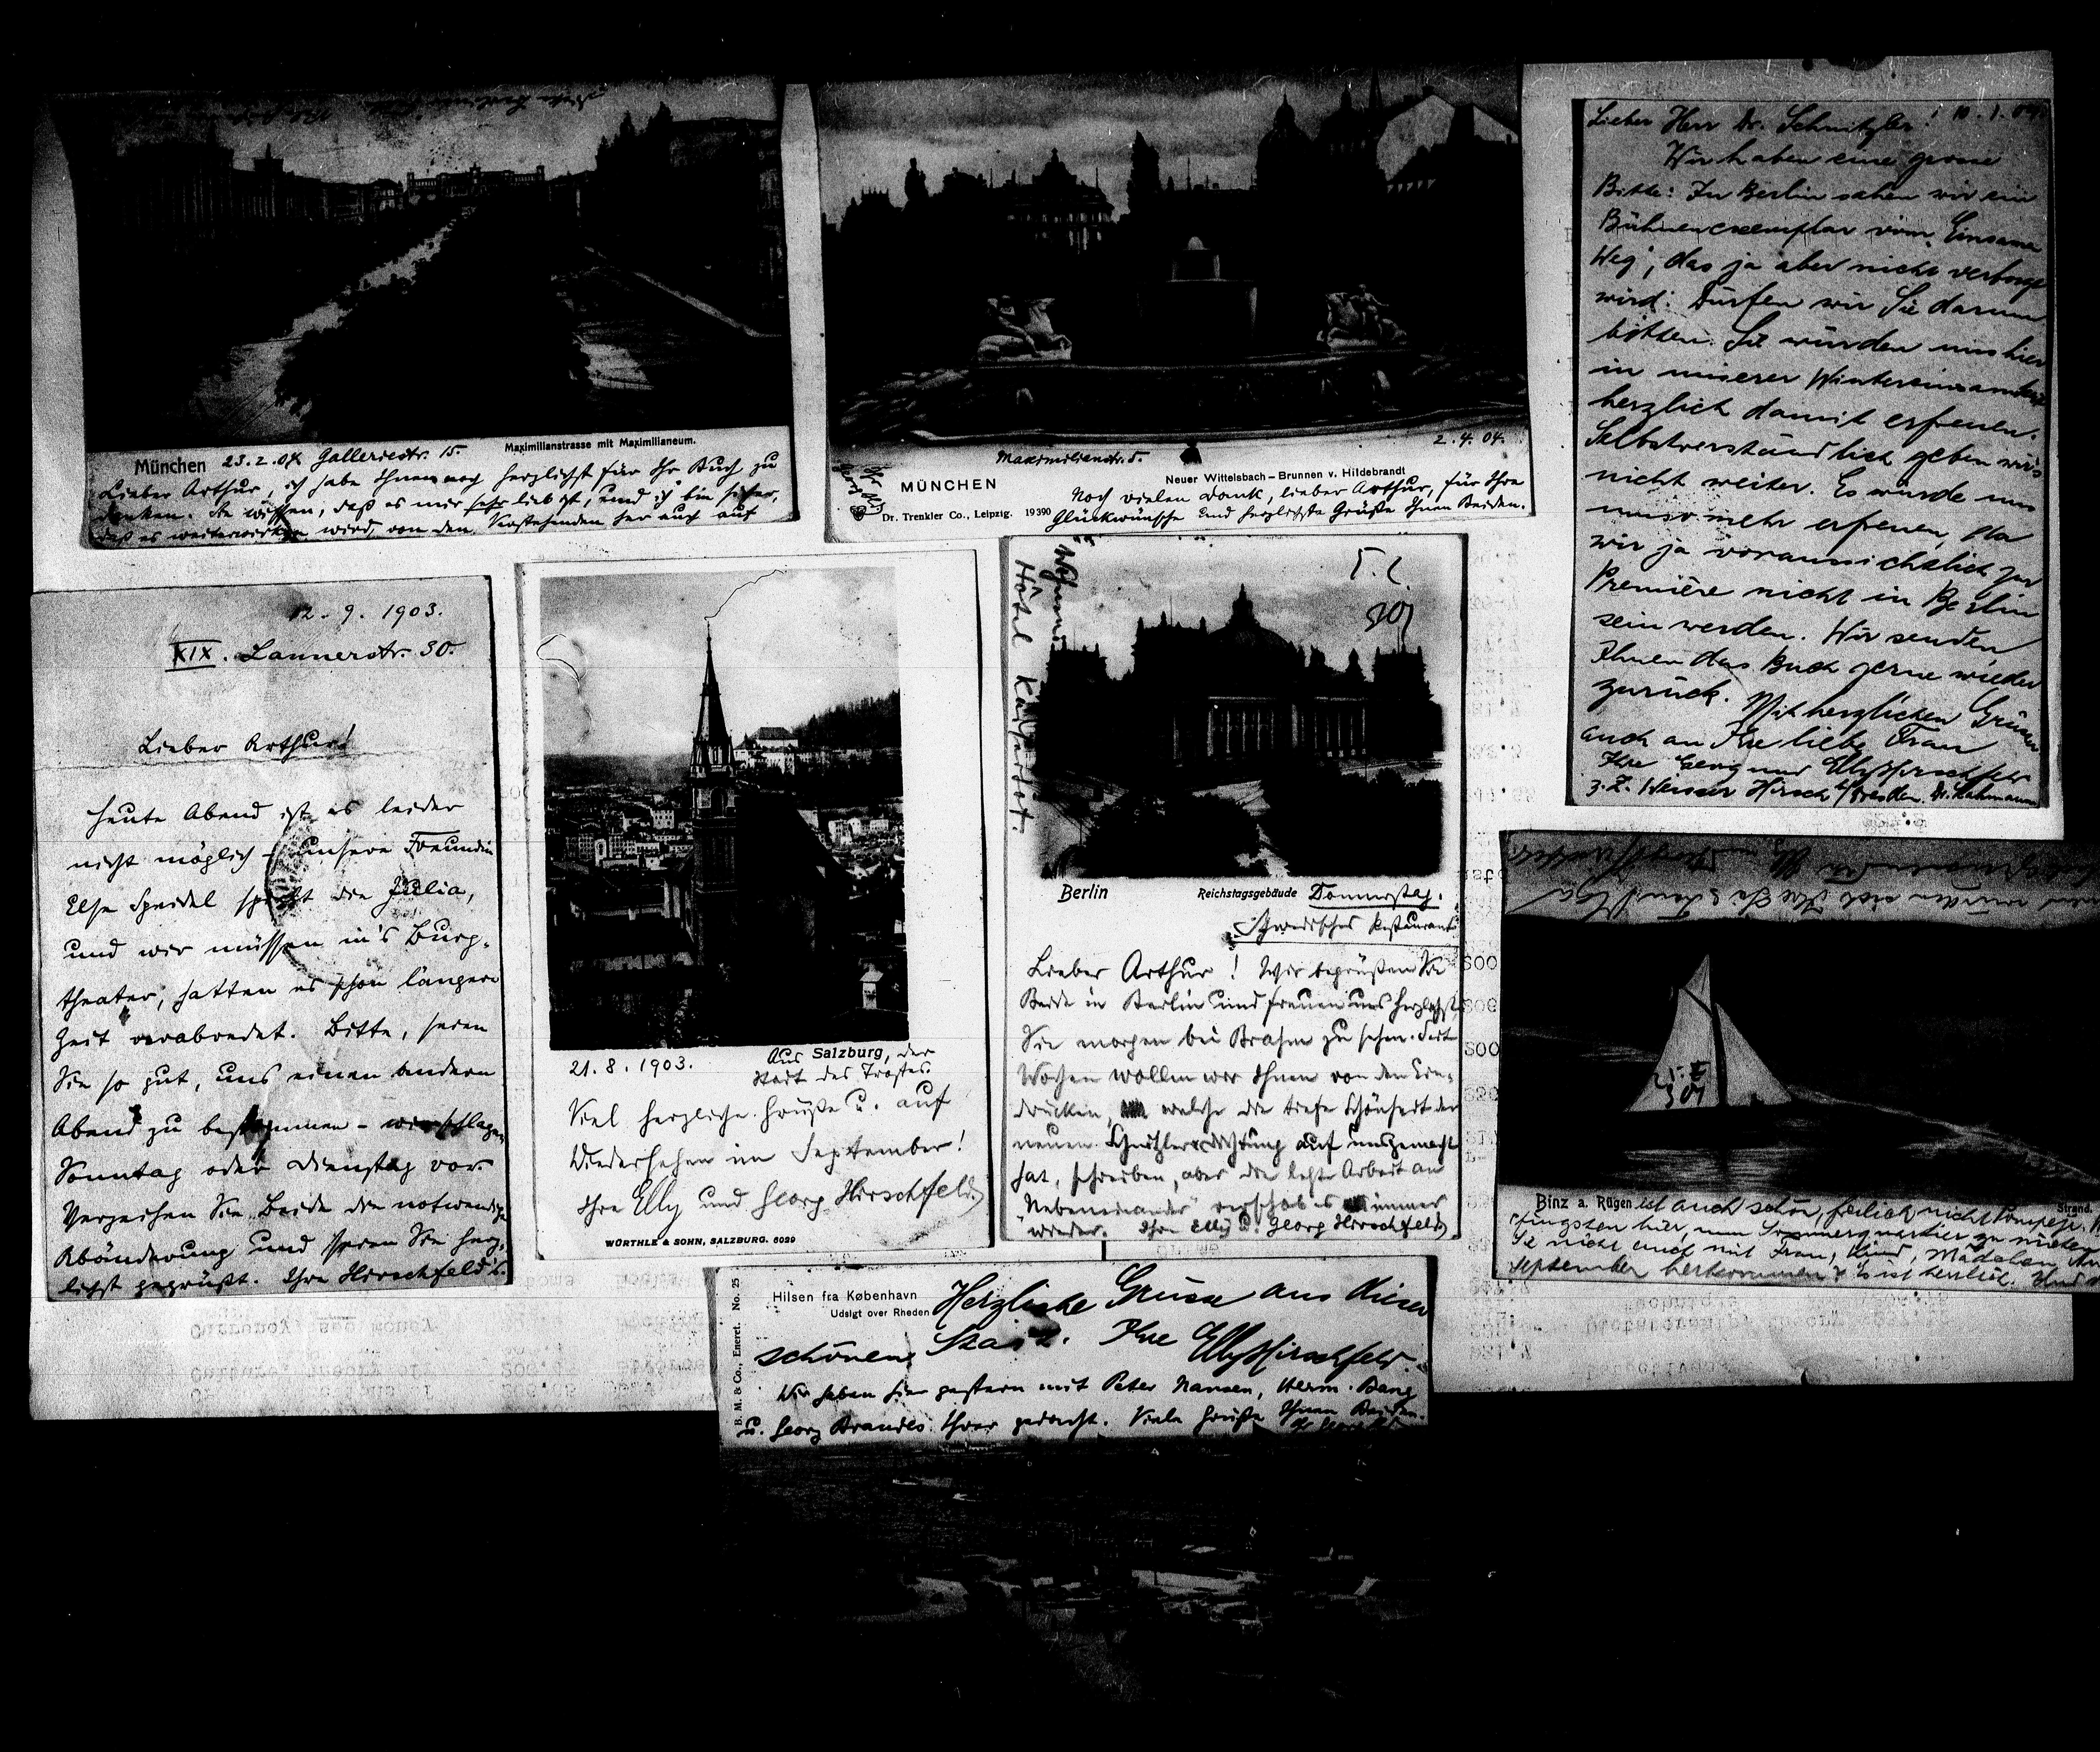 München 23.2.04 Galleriestr. 15.
Maximilianstrasse mit Maximilianeum.
Lieber Arthur, ich habe Ihnen noch herzlichst für Ihr Buch zu
danken. Sie wissen, daß es mir sehr lieb ist, und ich bin sicher,
daß es weiterwirken wird, von den Verstehenden her auch auf
2.4.04.
Maximilianstr. 5.
MÜNCHEN
Neuer Wittelsbach-Brunnen v. Hildebrandt
Dr. Trenkler Co., Leipzig. 19390
Noch vielen Dank, lieber Arthur, für Ihre
Glückwünsche und herzlichste Grüße Ihnen Beiden.
Lieber Herr Dr. Schnitzler! 10.1.04
Wir haben eine grosse
Bitte: In Berlin sahen wir ein
Bühnenexemplar vom „Einsame
Weg", das ja aber nicht verborgt
wird. Dürfen wir Sie darum
bitten. Sie würden uns hier
in unserer Wintereinsamkeit
herzlich damit erfreuen.
Selbstverständlich geben wir's
nicht weiter. Es würde uns
umso mehr erfreuen, da
wir ja voraussichtlich zur
Première nicht in Berlin
sein werden. Wir senden
Ihnen das Buch gerne wieder
zurück. Mit herzlichen Grüssen
auch an Ihre liebe Frau
Ihre Georg und Elly Hirschfeld
z. Z. Weisser Hirsch b/Dresden. Dr. Lahmann
12.9.1903.
XIX. Lannerstr. 30.
Lieber Arthur!
heute Abend ist es leider
nicht möglich – unsere Freundin
Else Speidel spielt die Julia,
und wir müssen in's Burg-
theater, hatten es schon längere
Zeit verabredet. Bitte, seien
Sie so gut, uns einen andern
Abend zu bestimmen – wir schlagen
Sonntag oder Dienstag vor.
Verzeihen Sie Beide die notwendige
Abänderung und seien Sie herz-
lichst gegrüßt. Ihre Hirschfeld's.
21.8.1903.
Aus Salzburg, der
Stadt des Trostes.
Viel herzliche Grüße u. auf
Wiedersehen im September!
Ihre Elly und Georg Hirschfeld.
WÜRTHLE & SOHN, SALZBURG. 6029
Wohnung:
Hôtel Kaiserhof.
Berlin
Reichstagsgebäude Donnerstag.
Restaurant
Lieber Arthur! Wir begrüßen Sie
Beide in Berlin und freuen uns herzlichst
Sie morgen bei Brahm zu sehen. Seit
Wochen wollen wir Ihnen von den Ein-
drücken, welche die tiefe Schönheit der
neuen Schnitzler-Dichtung auf uns gemacht
hat, schreiben, aber die letzte Arbeit an
„Nebeneinander" verschob es immer
wieder. Ihre Elly u. Georg Hirschfeld
Binz a. Rügen ist auch schön, freilich nicht Pompeji.
Strand.
Pfingsten hier, um Sommerquartier zu mieten.
Sie nicht auch mit Frau, Kind, Mädchen
September herkommen? Es ist herrlich. Und
Hilsen fra København
Udsigt over Rheden
B. M. & Co., Eneret. No. 25
Herzliche Grüsse aus dieser
schönen Stadt. Ihre Elly Hirschfeld.
Wir haben hier gestern mit Peter Nansen, Herm. Bang
u. Georg Brandes Ihrer gedacht. Viele Grüße Ihnen Beiden.